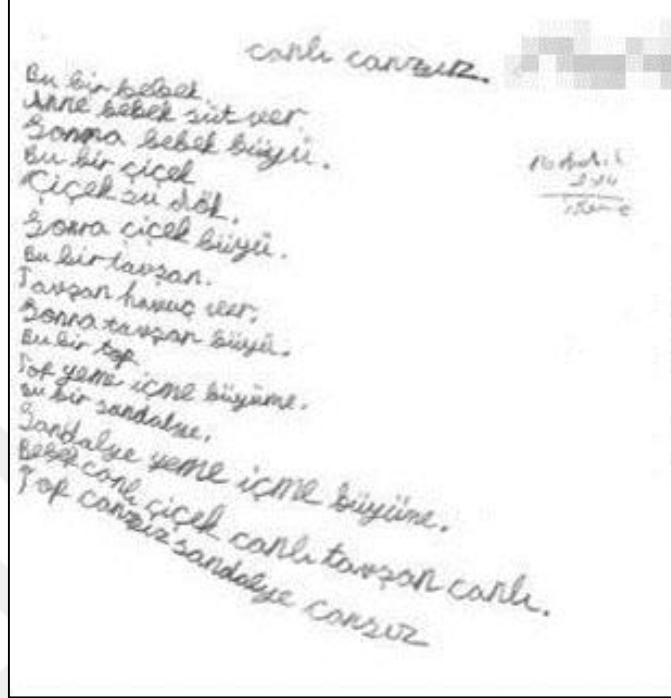 canlı cansız.
Bu bir bebek.
Anne bebek süt ver.
Sonra bebek büyü.
Bu bir çiçek
Çiçek su dök.
Sonra çiçek büyü.
Bu bir tavşan.
Tavşan havuç ver.
Sonra tavşan büyü.
Bu bir top
Top yeme içme büyüme.
Bu bir sandalye.
Sandalye yeme içme büyüme.
Bebek canlı çiçek canlı tavşan canlı.
Top cansız sandalye cansız